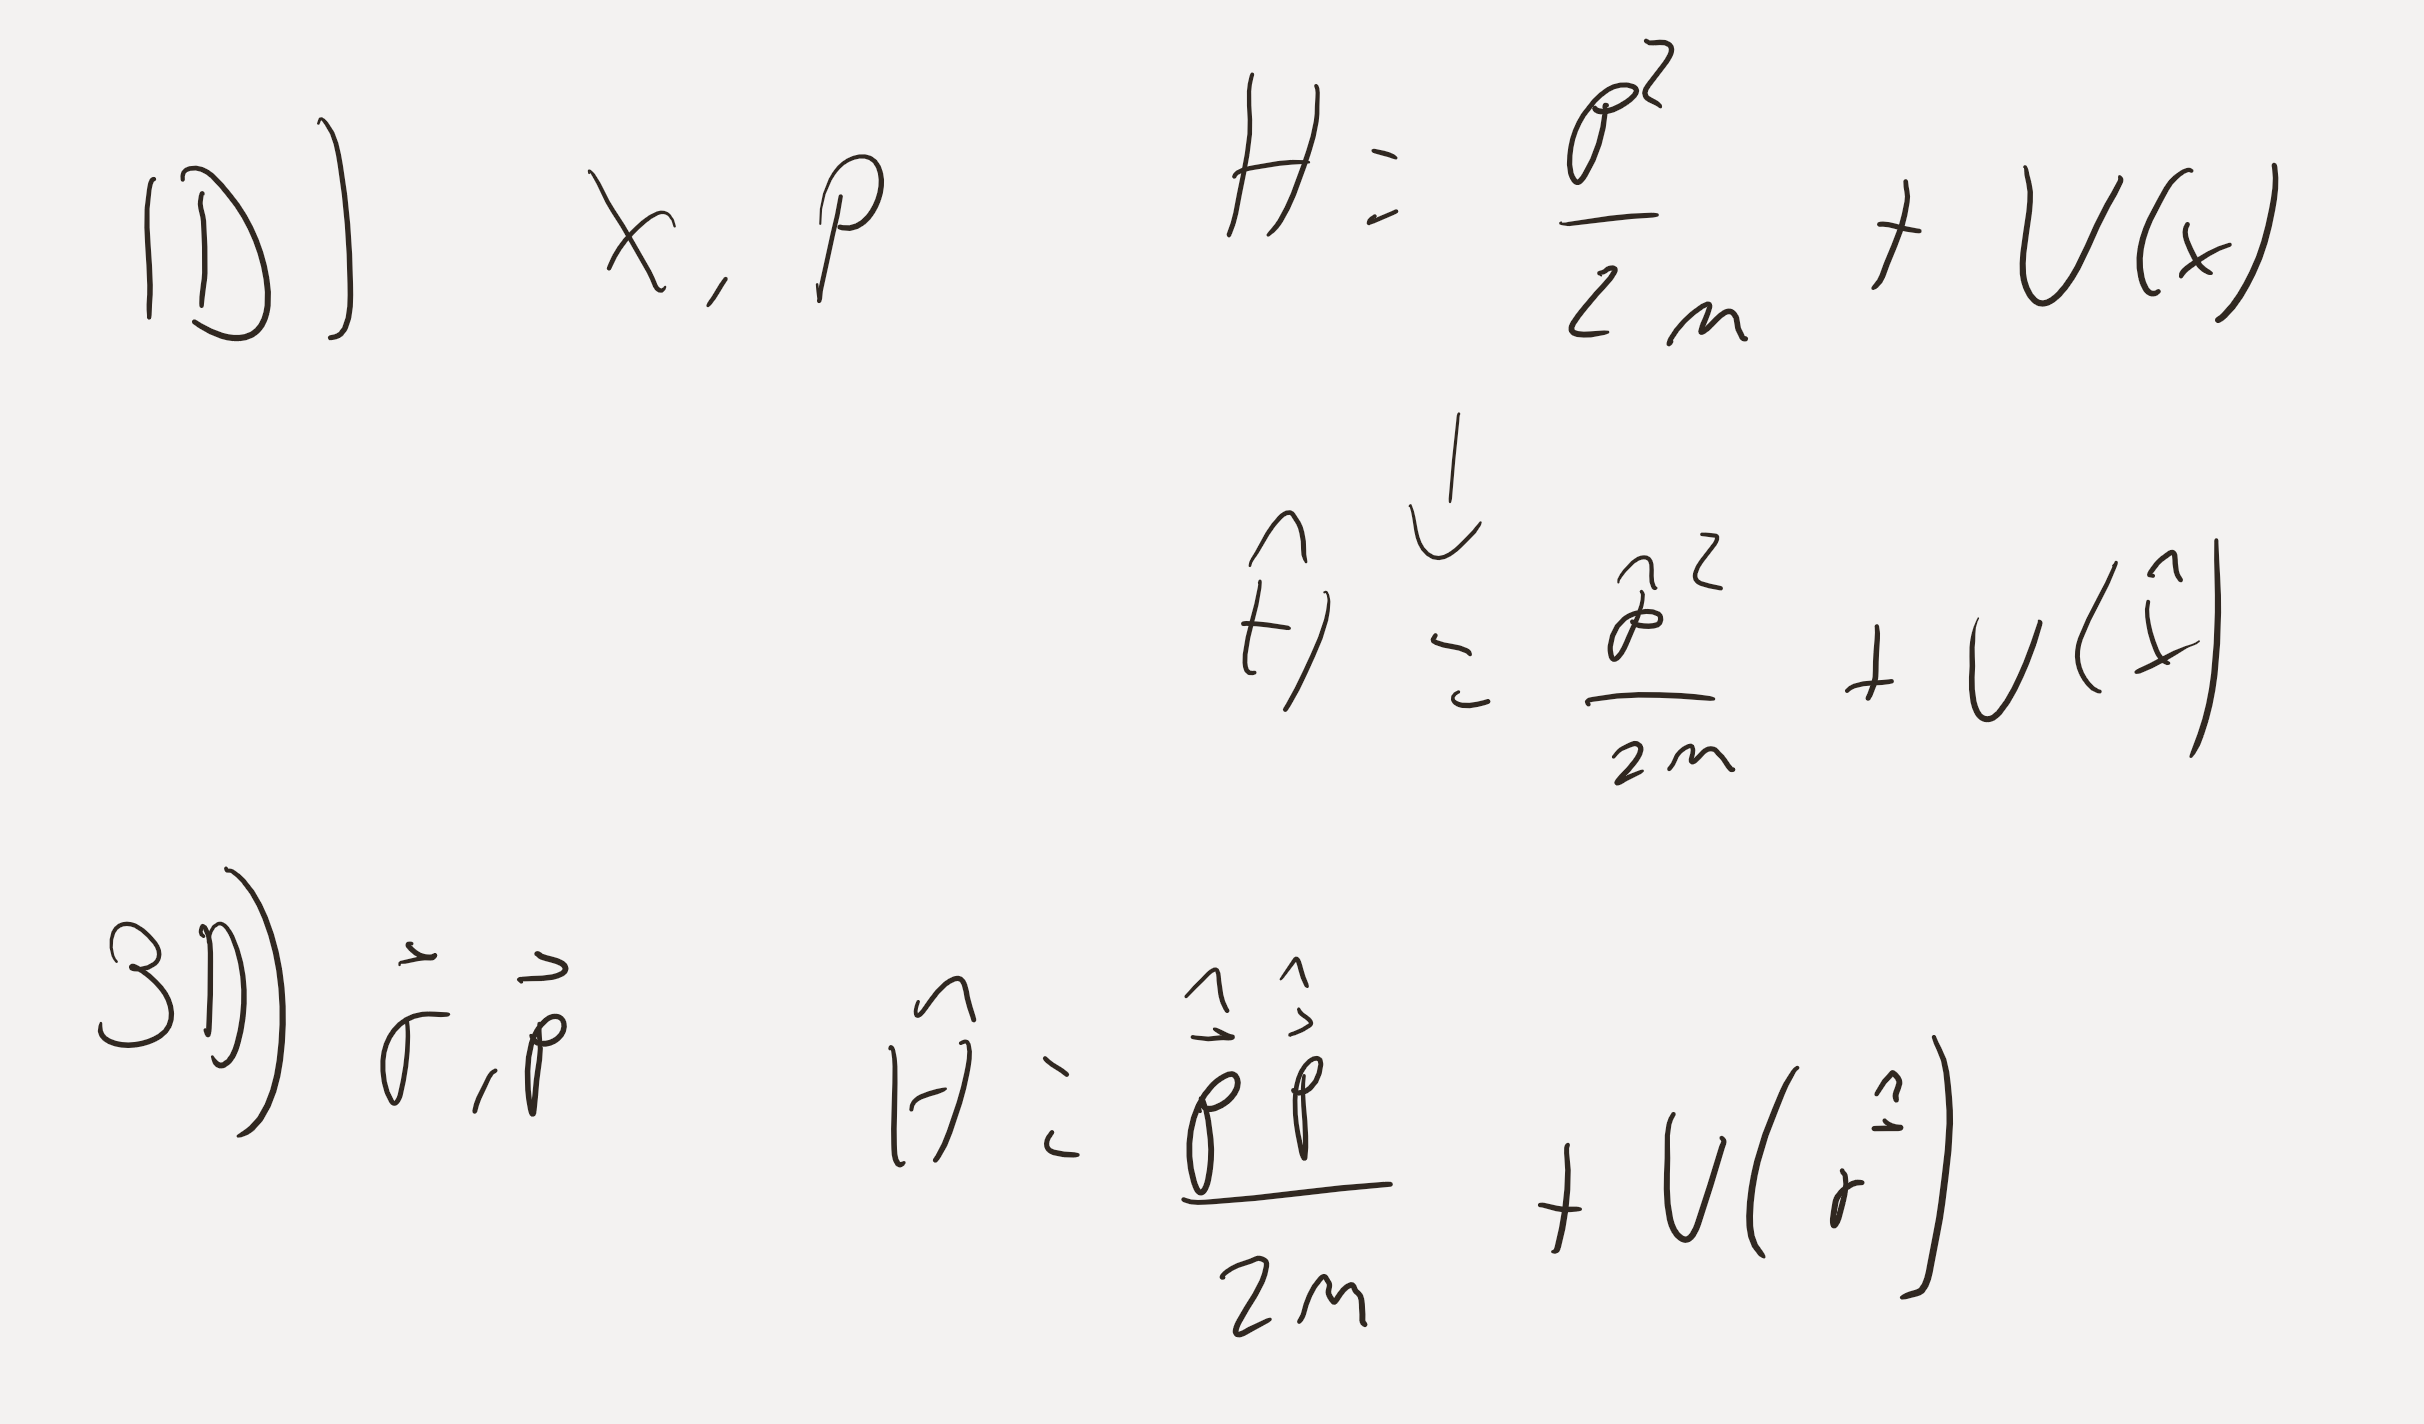 1D) x, p H = p²/2m + U(x)
↓
Ĥ = p̂²/2m + U(x̂)
3D) r⃗, p⃗ Ĥ = p⃗̂ p⃗̂/2m + U(r⃗̂)